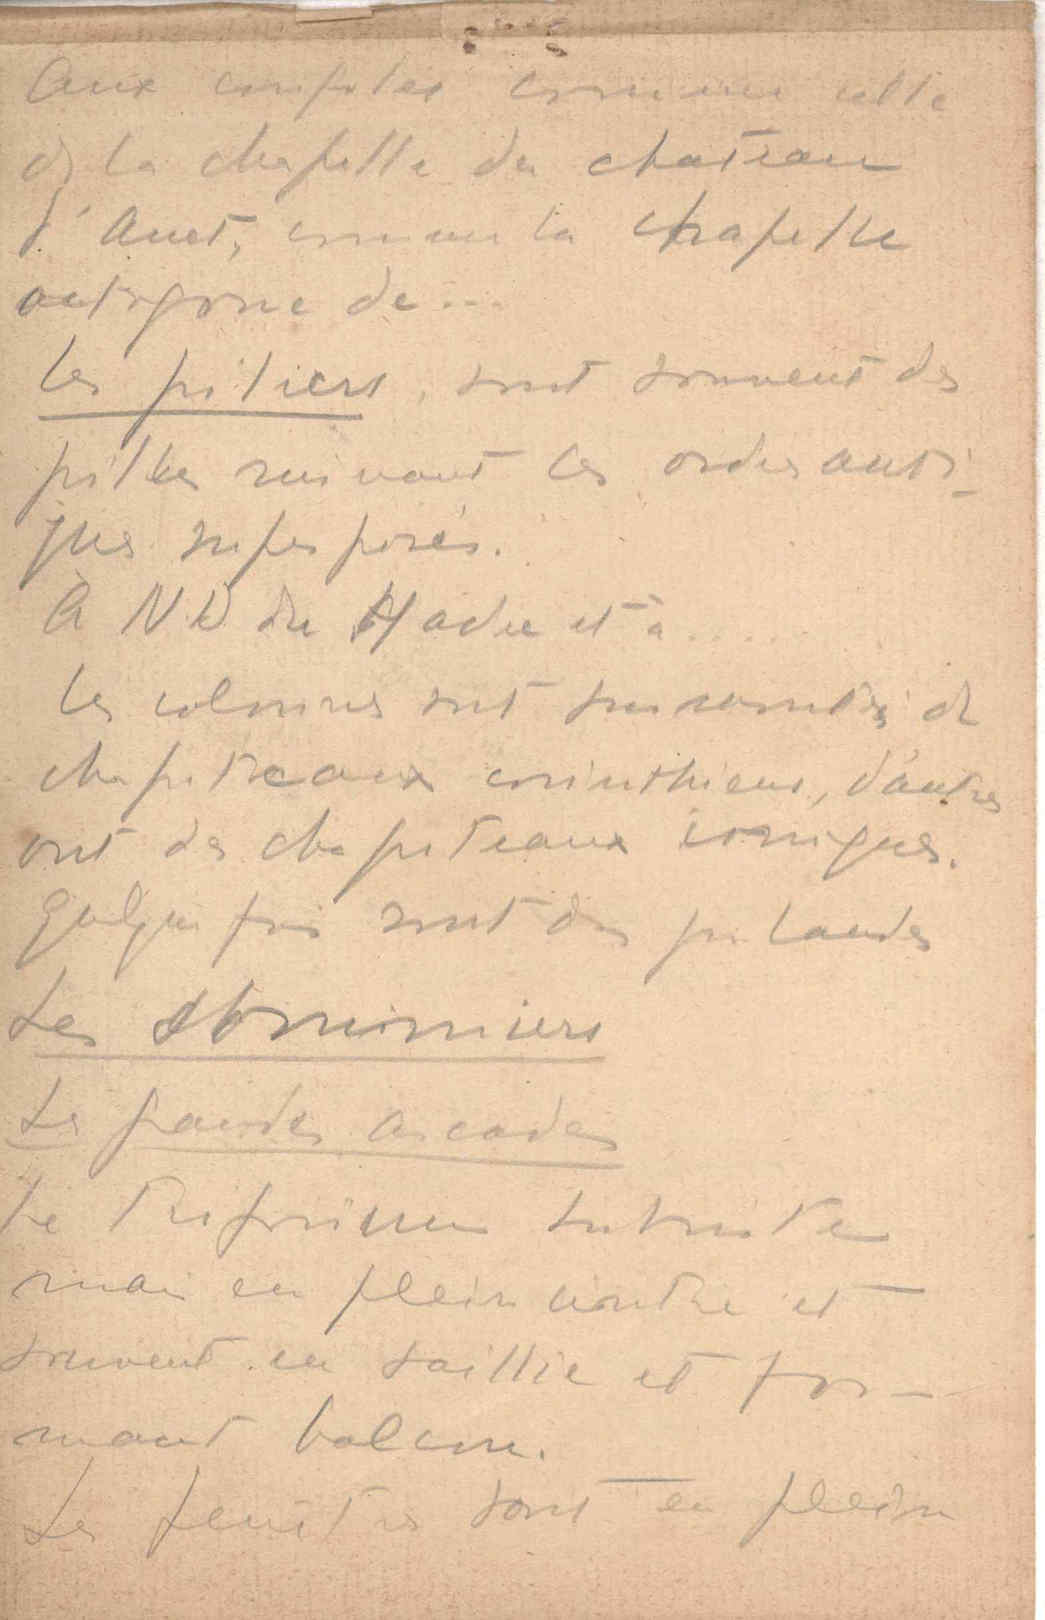 aux coupoles comme celle
de la chapelle du chateau
d'Anet, comme la chapelle
octogone de...
Les piliers, sont souvent des
piles suivant les ordres anti-
ques superposés.
A N.D. du Havre et à .....
Les colonnes sont surmontées de
chapiteaux corinthiens, d'autres
ont des chapiteaux ioniques.
Quelques fois sont des
Les
Les grandes arcades
Le Triforium subsiste
mais en plein cintre et
souvent en saillie et for-
mant balcon.
Les fenêtres sont en plein